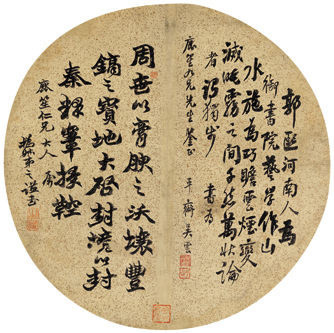 郭熙河南人為
御書院藝學作山
水施為巧贍雲煙變
滅晻靄之間千態萬狀論
者謂獨步 書為
廉笙九兄先生鑒正
平齋吳雲
周世以膏腴之沃壤豐
鎬之寶地大啓封境以封
秦
廉笙仁兄大人屬